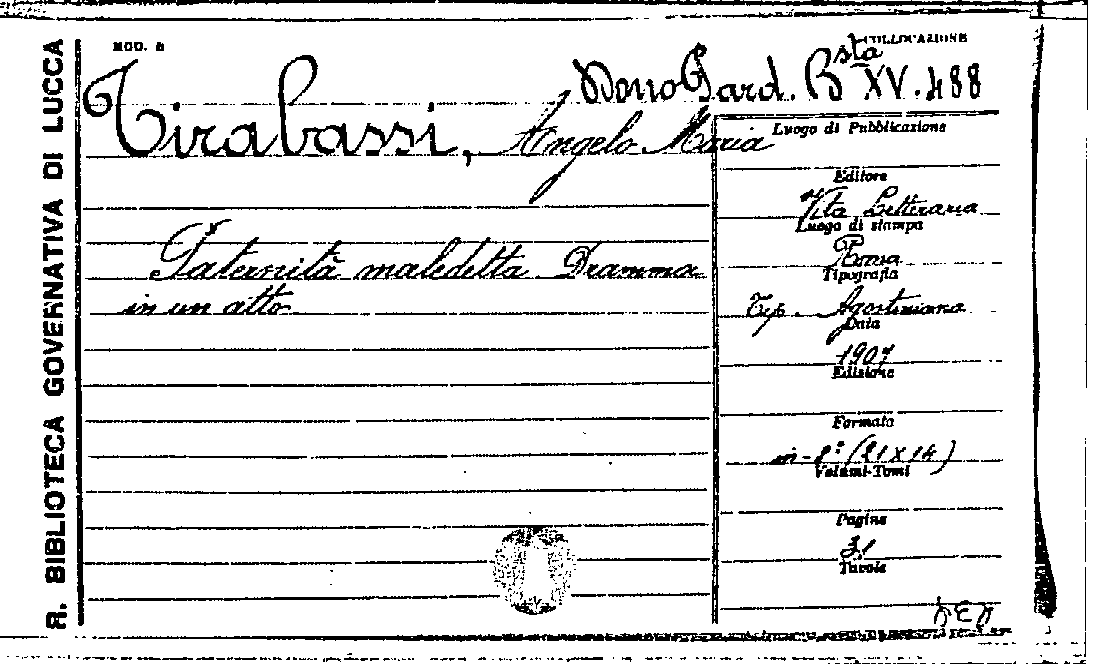 R. BIBLIOTECA GOVERNATIVA DI LUCCA
MOD. a
COLLOCAZIONE
Dono Gard. Bsta XV. 488
Tirabassi, Angelo Maria
Paternità maledetta. Dramma
in un atto.
Luogo di Pubblicazione
Editore
Vita Letteraria
Luogo di stampa
Roma
Tipografia
Tip. Agostiniana
Data
1907
Edizione
Formato
in-8° (21 x 14)
Volumi-Tomi
Pagine
31
Tavole